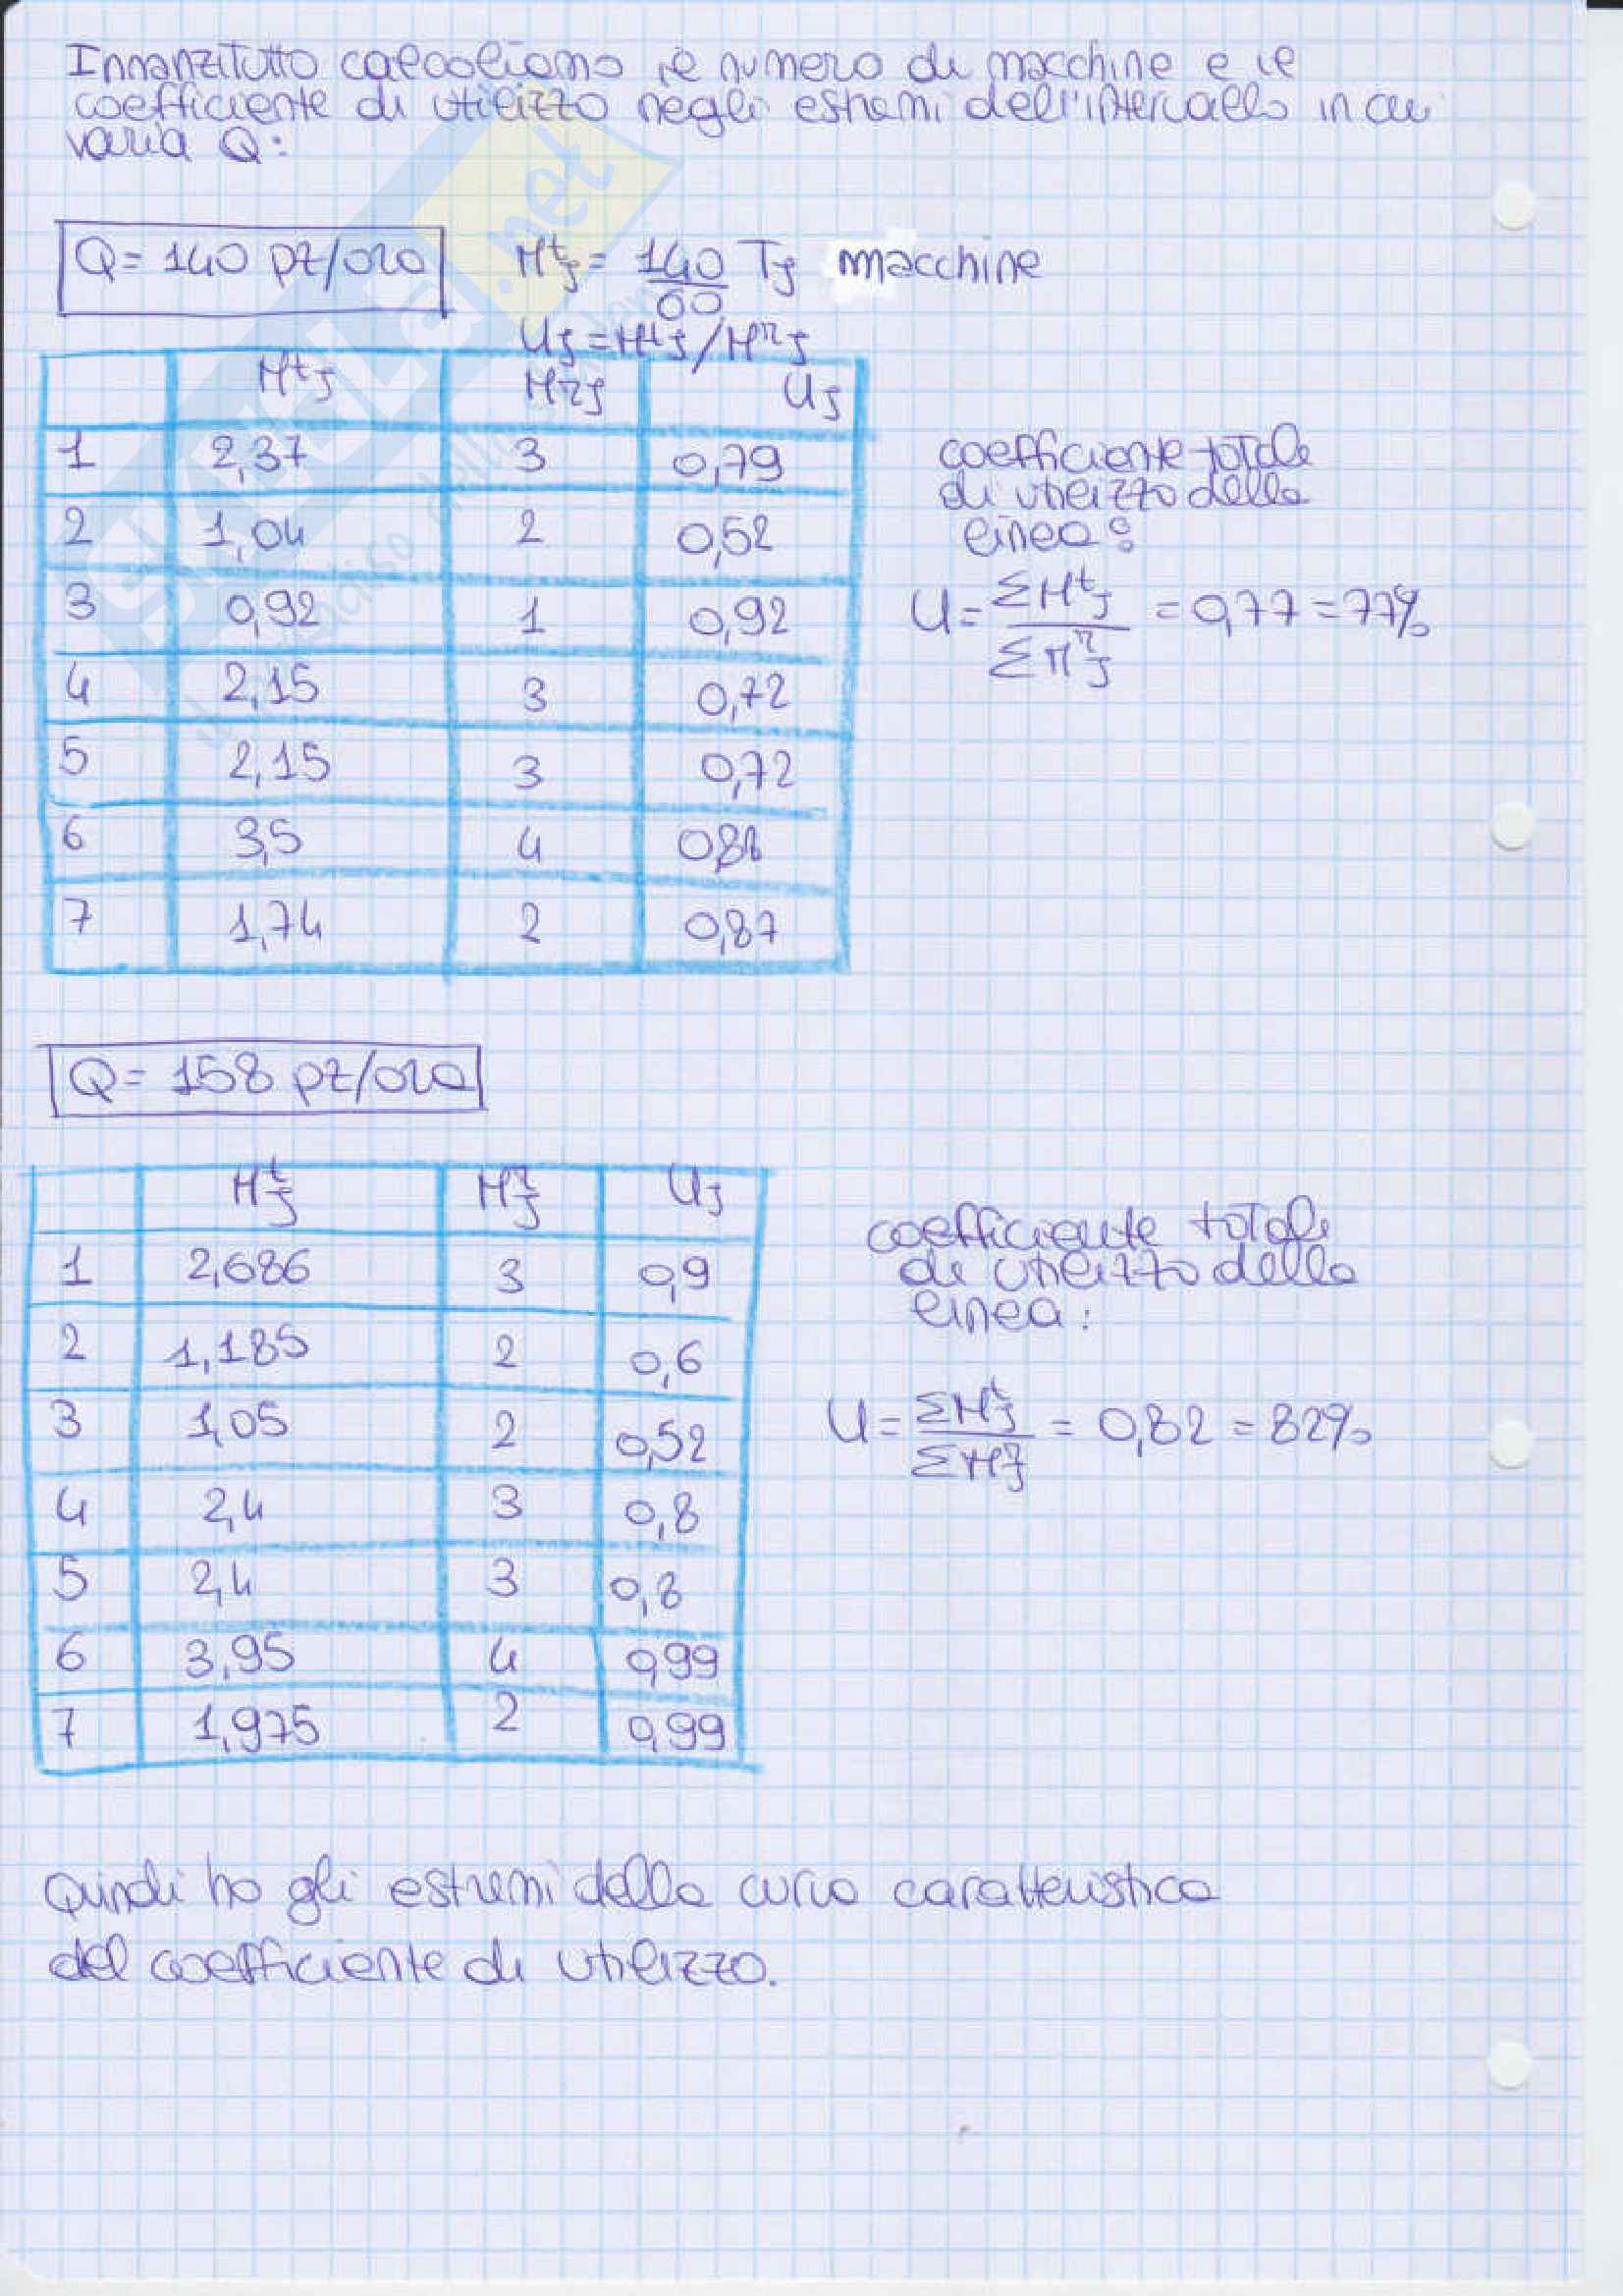 Innanzitutto calcoliamo il numero di macchine e il
coefficiente di utilizzo negli estremi dell'intervallo in cui
varia Q:
Q= 140 pz/ora
Mtj = 140/60 Tj macchine
Uj = Mtj/Mrj
Mtj Mrj Uj
1 2,37 3 0,79
2 1,04 2 0,52
3 0,92 1 0,92
4 2,15 3 0,72
5 2,15 3 0,72
6 3,5 4 0,88
7 1,74 2 0,87
coefficiente totale
di utilizzo della
linea:
U= ΣMtj/ΣMrj = 0,77 = 77%
Q= 158 pz/ora
Mtj Mrj Uj
1 2,686 3 0,9
2 1,185 2 0,6
3 1,05 2 0,52
4 2,4 3 0,8
5 2,4 3 0,8
6 3,95 4 0,99
7 1,975 2 0,99
coefficiente totale
di utilizzo della
linea:
U= ΣMtj/ΣMrj = 0,82 = 82%
Quindi ho gli estremi della curva caratteristica
del coefficiente di utilizzo.